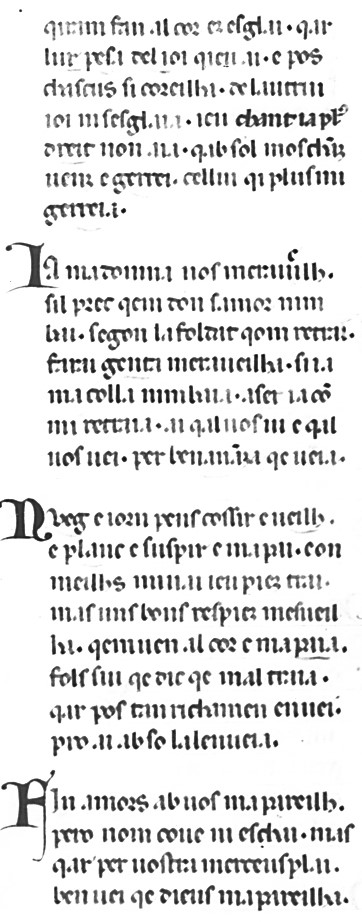 quiam fan al cor et esglai · qar
lur pesa del ioi qieu ai · e pos
chascus si coreilha · de lautrui
ioi ni sesglaia · ieu chant ia
dreit non ai · qab sol mos
uenz e gerrei · cellui qi plus mi
gerreia ·
IA ma domna nos merauilh ·
sil prec qem don samor nim
bai · segon la foldat qom retrai ·
fara genta merueilha · si ia
ma colla nim baia · aser ia cō
mi retraia · ai qal uos ui e qal
uos uei · per qe ueia ·
Nueg e iorn pens cossir e ueilh ·
e planc e suspir e mapai · con
meilhs minai ieu piez trai ·
mas uns bons respiez mesueil
ha · qem uen al cor e mapaia ·
fols sui qe dic qe mal traia ·
qar pos tan richamen enuei ·
pro ai ab so la lenueia ·
Fin amors ab uos mapareilh ·
pero nom coue ni eschai · mas
qar per uostra merceusplai ·
ben uei qe dieus mapareilha ·